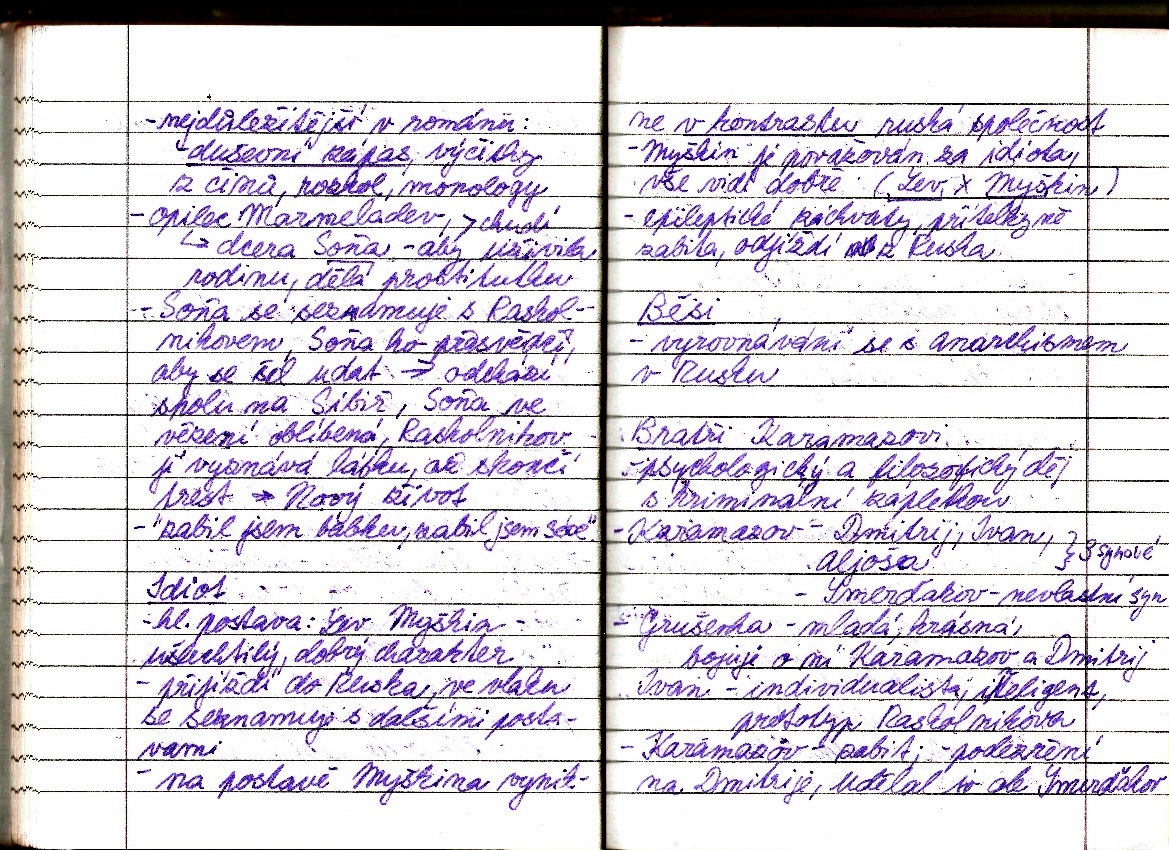 - nejdůležitější v románu:
duševní zápas, výčitky
z činu, rozkol, monology
- opilec Marmeladev, > chudí
↳ dcera Soňa - aby uživila
rodinu, dělá prostitutku
- Soňa se seznamuje s Raskol-
nikovem, Soňa ho přesvědčí,
aby se šel udat → odchází
spolu na Sibiř, Soňa ve
vězení oblíbená, Raskolnikov
jí vyznává lásku, až skončí
trest → Nový život
- "zabil jsem babku, zabil jsem sebe"
Idiot
- hl. postava: Lev Myškin -
ušlechtilý, dobrý charakter
- přijíždí do Ruska, ve vlaku
se seznamuje s dalšími posta-
vami
- na postavě Myškina vynik-
ne v kontrastu ruská společnost
- Myškin je považován za idiota,
vše vidí dobře (Lev x Myškin)
- epileptické záchvaty, přítelkyně
zabita, odjíždí z Ruska
Běsi
- vyrovnávání se s anarchismem
v Rusku
Bratři Karamazovi
- psychologický a filozofický děj
s kriminální zápletkou
- Karamazov - Dmitrij, Ivan,
Aljoša } 3 synové
- Smerďakov - nevlastní syn
- Grušenka - mladá, krásná,
bojuje o ni Karamazov a Dmitrij
Ivan - individualista, inteligent,
prototyp Raskolnikova
- Karamazov - zabit; - podezření
na Dmitrije, udělal to ale Smerďakov